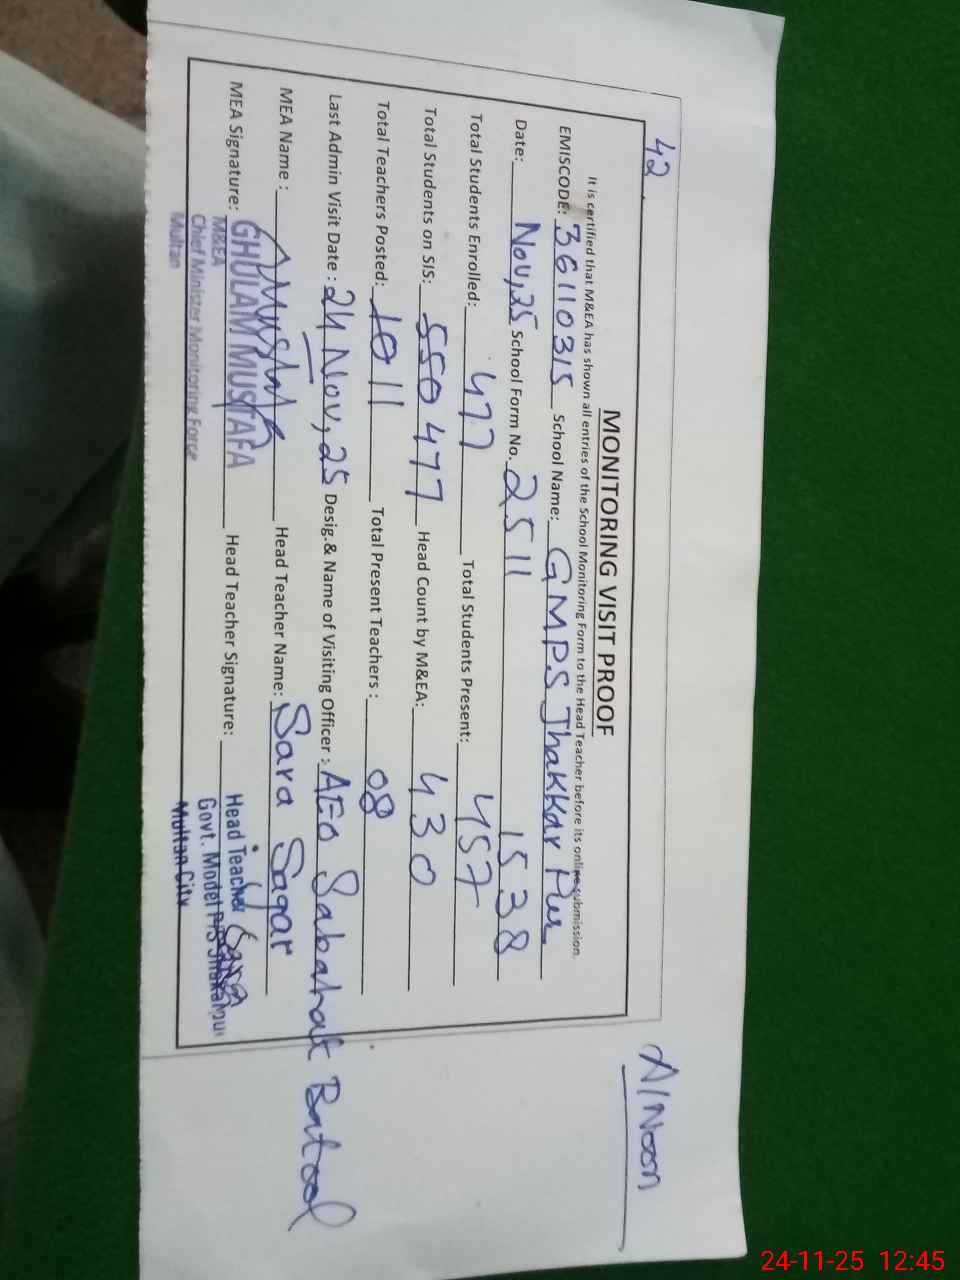 42
A/Noon
MONITORING VISIT PROOF
It is certified that M&EA has shown all entries of the School Monitoring Form to the Head Teacher before its online submission.
EMISCODE: 36110315 School Name: GMPS Thakkar Pur
Date: Nov, 25 School Form No. 2511 1538
Total Students Enrolled: 477 Total Students Present: 457
Total Students on SIS: 550 477 Head Count by M&EA: 430
Total Teachers Posted: 10 11 Total Present Teachers : 08
Last Admin Visit Date : 24 Nov, 25 Desig.& Name of Visiting Officer : AEO Sabahat Batool
MEA Name : Head Teacher Name: Sara Sagar
MEA Signature: GHULAM MUSTAFA Head Teacher Signature: Head Teacher
M&EA Govt. Model P/S
Chief Minister Monitoring Force Multan City
Multan
24-11-25 12:45